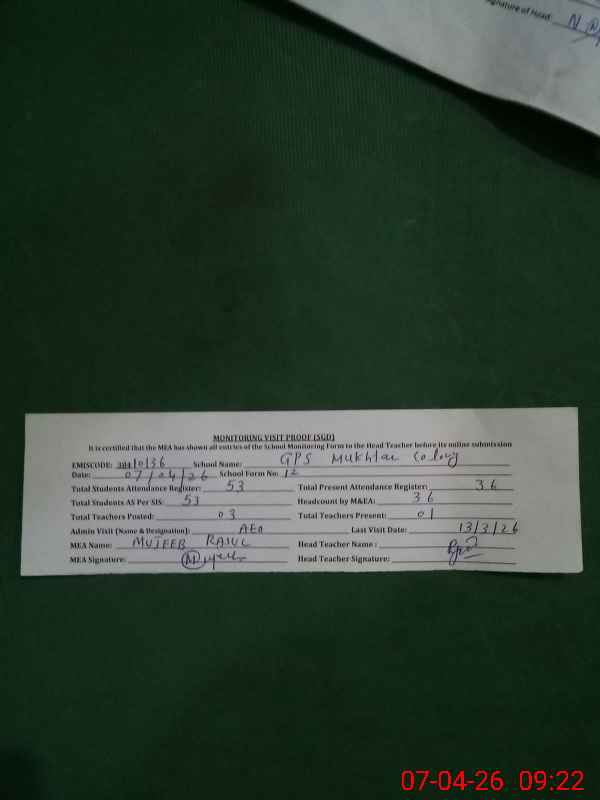 Signature of Head N
MONITORING VISIT PROOF (SGD)
It is certified that the MEA has shown all entries of the School Monitoring Form to the Head Teacher before its online submission
EMISCODE: 38410136 School Name: GPS Mukhtar Colony
Date: 07/04/26 School Form No: 12
Total Students Attendance Register: 53 Total Present Attendance Register: 36
Total Students AS Per SIS: 53 Headcount by M&EA: 36
Total Teachers Posted: 03 Total Teachers Present: 01
Admin Visit (Name & Designation): AEO Last Visit Date: 13/3/26
MEA Name: MUJEEB RASUL Head Teacher Name:
MEA Signature: Head Teacher Signature:
07-04-26 09:22